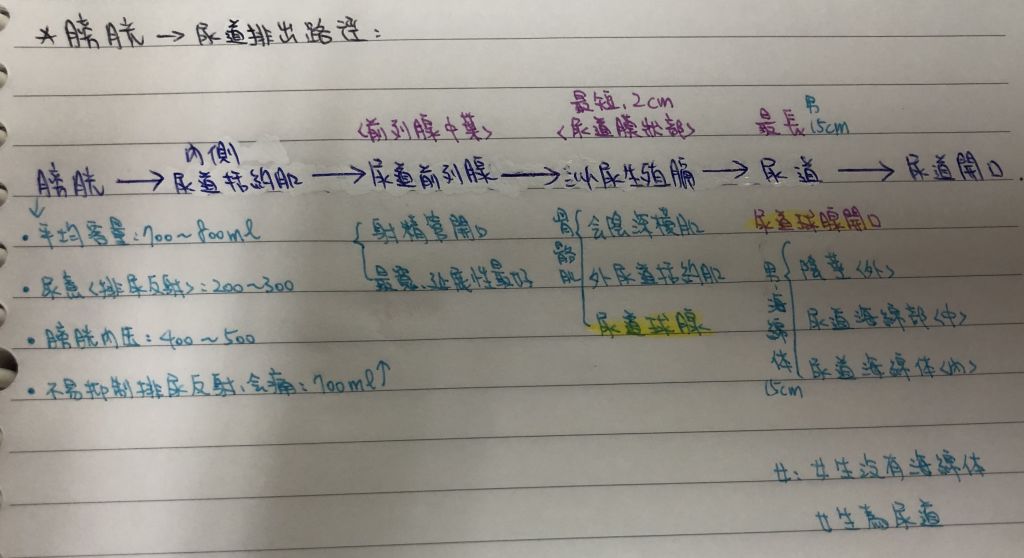 *膀胱→尿道排出路徑:
<前列腺中葉>
最短.2cm
<尿道膜狀部>
最長 男 15cm
膀胱→內側尿道括約肌→尿道前列腺→泌尿生殖膈→尿道→尿道開口.
•平均容量:700~800ml
•尿意<排尿反射>:200~300
•膀胱內压:400~500
•不易抑制排尿反射.会痛:700ml↑
射精管開口
最寬.延展性最好
骨骼肌
会陰深橫肌
外尿道括約肌
尿道球腺
尿道球腺開口
男.海綿体 15cm
陰莖<外>
尿道海綿部<中>
尿道海綿体<內>
女:女生沒有海綿体
女生為尿道